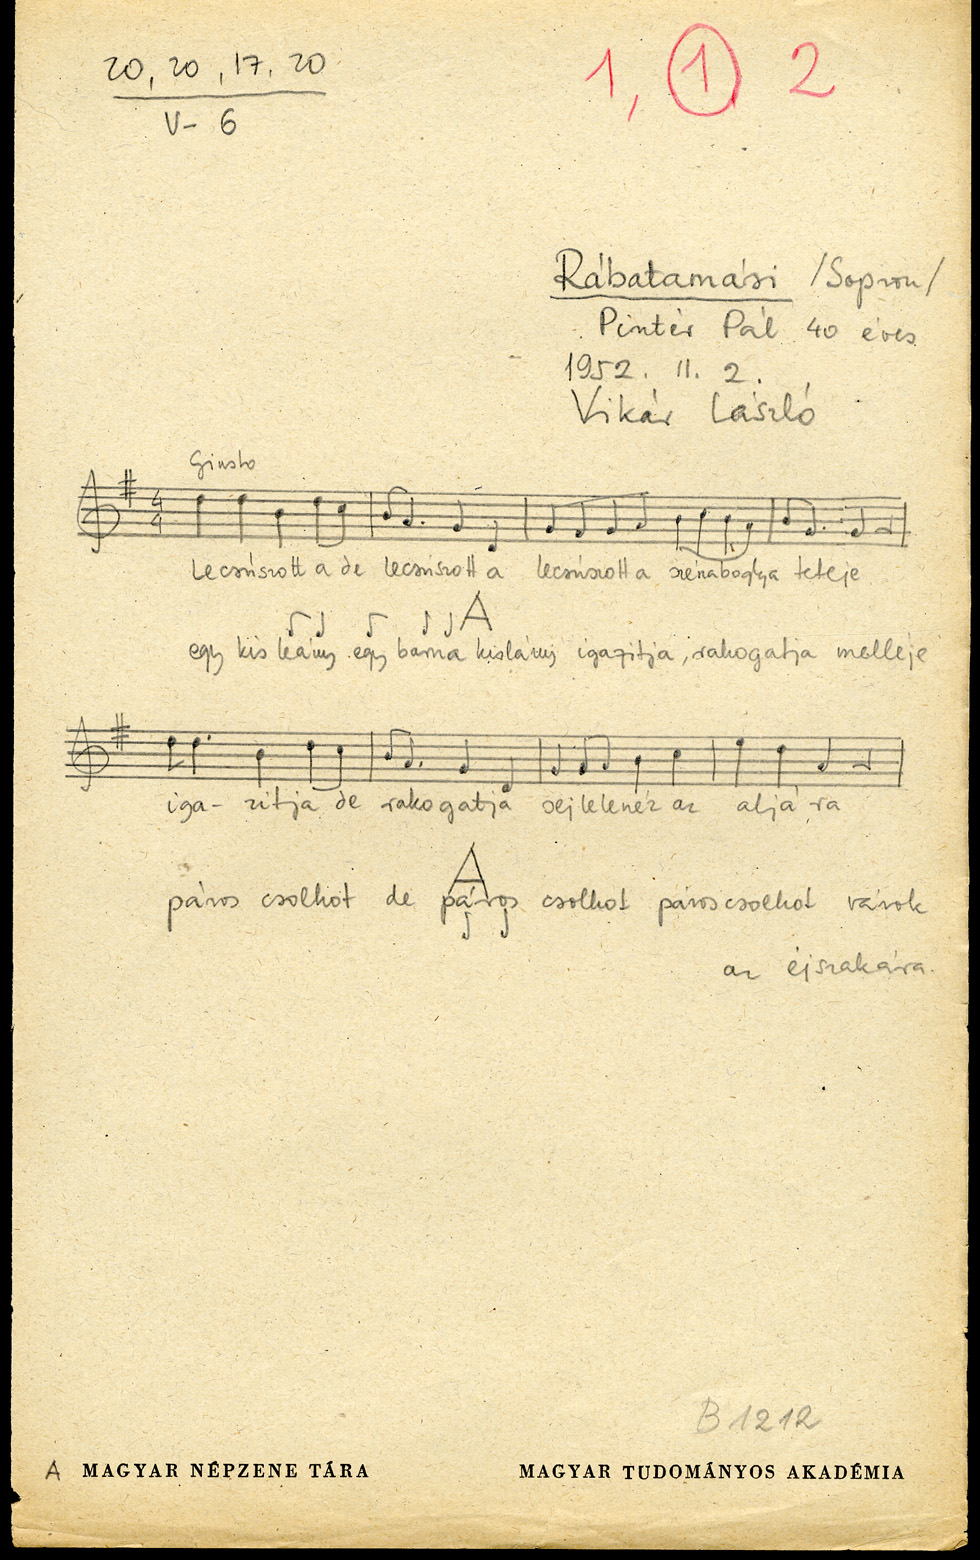 20, 20, 17, 20
V- 6
1, 1 2
Rábatamási /Sopron/
Pintér Pál 40 éves
1952. II. 2.
Vikár László
Giusto
4
4
Lecsúszott a de lecsúszott a lecsúszott a szénaboglya teteje
A
egy kis leány egy barna kislány igazitja, rakogatja melleje
iga- zitja de rakogatja az aljá ra
A
páros csolkot de páros csolkot pároscsolkot várok
az éjszakára.
B 1212
A MAGYAR NÉPZENE TÁRA MAGYAR TUDOMÁNYOS AKADÉMIA